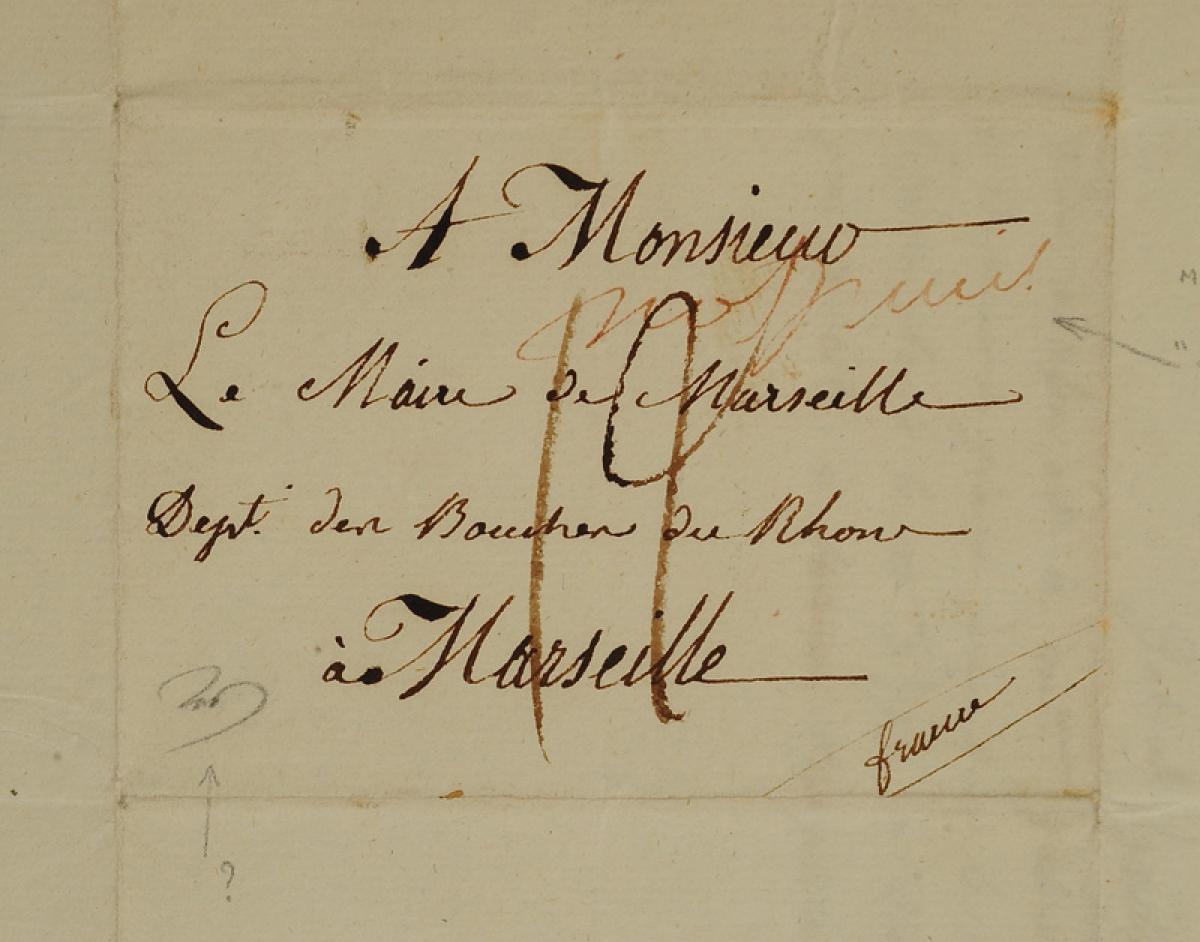 A Monsieur
Le Maire de Marseille
Dept. des Bouches du Rhone
à Marseille
france
?